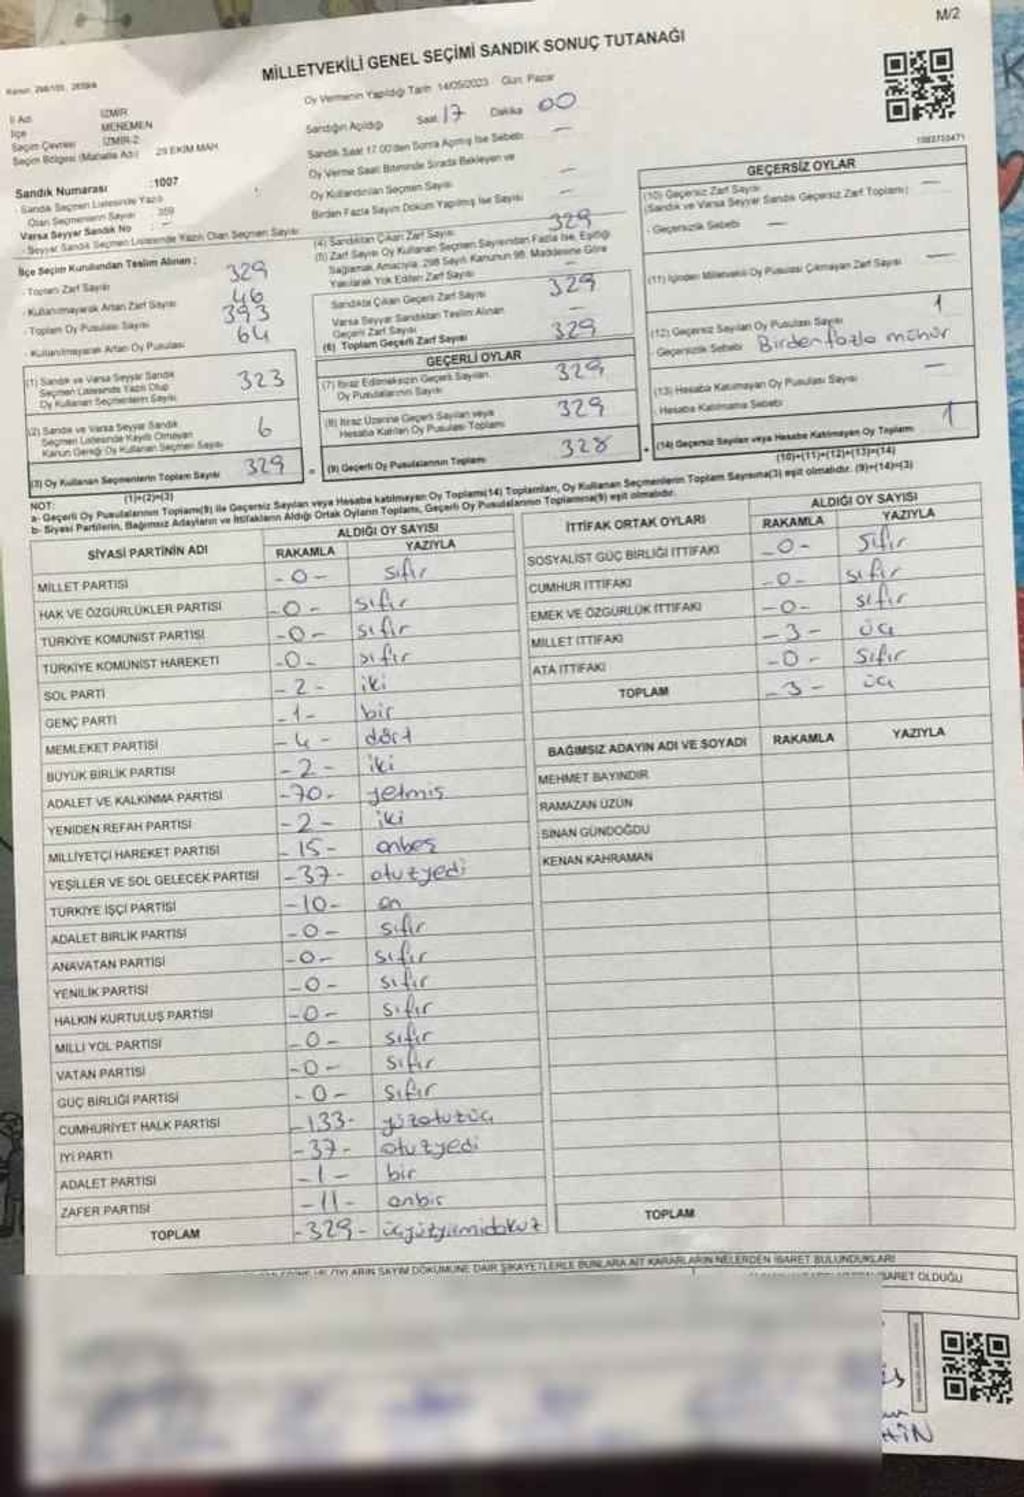 M/2
MİLLETVEKİLİ GENEL SEÇİMİ SANDIK SONUÇ TUTANAĞI
Oy Vermenin Yapıldığı Tarih 14/05/2023 Gün: Pazar
İl Adı İZMİR
İlçe MENEMEN
Seçim Çevresi İZMİR-2
Seçim Bölgesi (Mahalle Adı) 29 EKİM MAH.
Sandığın Açıldığı Saat 17 Dakika 00
Sandık Saat 17.00'den Sonra Açılmış İse Sebebi —
Oy Verme Saati Bitiminde Sırada Bekleyen ve
Oy Kullandırılan Seçmen Sayısı —
Birden Fazla Sayım Döküm Yapılmış İse Sayısı —
Sandık Numarası :1007
Sandık Seçmen Listesinde Yazılı
Olan Seçmenlerin Sayısı 359
Varsa Seyyar Sandık No : —
- Seyyar Sandık Seçmen Listesinde Yazılı Olan Seçmen Sayısı
İlçe Seçim Kurulundan Teslim Alınan :
- Toplam Zarf Sayısı 329
- Kullanılmayarak Artan Zarf Sayısı 46
- Toplam Oy Pusulası Sayısı 393
- Kullanılmayarak Artan Oy Pusulası 64
(1) Sandık ve Varsa Seyyar Sandık
Seçmen Listesinde Yazılı Olup
Oy Kullanan Seçmenlerin Sayısı 323
(2) Sandık ve Varsa Seyyar Sandık
Seçmen Listesinde Kayıtlı Olmayan
Kanun Gereği Oy Kullanan Seçmen Sayısı 6
(3) Oy Kullanan Seçmenlerin Toplam Sayısı 329
(1)+(2)=(3)
(4) Sandıktan Çıkan Zarf Sayısı 329
(5) Zarf Sayısı Oy Kullanan Seçmen Sayısından Fazla İse, Eşitliği
Sağlamak Amacıyla, 298 Sayılı Kanunun 98. Maddesine Göre
Yakılarak Yok Edilen Zarf Sayısı —
Sandıkta Çıkan Geçerli Zarf Sayısı 329
Varsa Seyyar Sandıktan Teslim Alınan
Geçerli Zarf Sayısı —
(6) Toplam Geçerli Zarf Sayısı 329
GEÇERLİ OYLAR
(7) İtiraz Edilmeksizin Geçerli Sayılan
Oy Pusulalarının Sayısı 329
(8) İtiraz Üzerine Geçerli Sayılan veya
Hesaba Katılan Oy Pusulası Toplamı 329
= (9) Geçerli Oy Pusulalarının Toplamı 328
GEÇERSİZ OYLAR
(10) Geçersiz Zarf Sayısı
(Sandık ve Varsa Seyyar Sandık Geçersiz Zarf Toplamı) —
- Geçersizlik Sebebi —
(11) İçinden Milletvekili Oy Pusulası Çıkmayan Zarf Sayısı —
(12) Geçersiz Sayılan Oy Pusulası Sayısı 1
- Geçersizlik Sebebi Birden fazla mühür
(13) Hesaba Katılmayan Oy Pusulası Sayısı —
Hesaba Katılmama Sebebi
+ (14) Geçersiz Sayılan veya Hesaba Katılmayan Oy Toplamı 1
(10)+(11)+(12)+(13)=(14)
NOT:
a- Geçerli Oy Pusulalarının Toplamı(9) ile Geçersiz Sayılan veya Hesaba katılmayan Oy Toplamı(14) Toplamları, Oy Kullanan Seçmenlerin Toplam Sayısına(3) eşit olmalıdır. (9)+(14)=(3)
b- Siyasi Partilerin, Bağımsız Adayların ve İttifakların Aldığı Ortak Oyların Toplamı, Geçerli Oy Pusulalarının Toplamına(9) eşit olmalıdır.
SİYASİ PARTİNİN ADI ALDIĞI OY SAYISI
RAKAMLA YAZIYLA
MİLLET PARTİSİ -0- sıfır
HAK VE ÖZGÜRLÜKLER PARTİSİ -0- sıfır
TÜRKİYE KOMÜNİST PARTİSİ -0- sıfır
TÜRKİYE KOMÜNİST HAREKETİ -0- sıfır
SOL PARTİ -2- iki
GENÇ PARTİ -1- bir
MEMLEKET PARTİSİ -4- dört
BÜYÜK BİRLİK PARTİSİ -2- iki
ADALET VE KALKINMA PARTİSİ -70- yetmiş
YENİDEN REFAH PARTİSİ -2- iki
MİLLİYETÇİ HAREKET PARTİSİ -15- onbeş
YEŞİLLER VE SOL GELECEK PARTİSİ -37- otuzyedi
TÜRKİYE İŞÇİ PARTİSİ -10- on
ADALET BİRLİK PARTİSİ -0- sıfır
ANAVATAN PARTİSİ -0- sıfır
YENİLİK PARTİSİ -0- sıfır
HALKIN KURTULUŞ PARTİSİ -0- sıfır
MİLLİ YOL PARTİSİ -0- sıfır
VATAN PARTİSİ -0- sıfır
GÜÇ BİRLİĞİ PARTİSİ -0- sıfır
CUMHURİYET HALK PARTİSİ -133- yüzotuzüç
İYİ PARTİ -37- otuzyedi
ADALET PARTİSİ -1- bir
ZAFER PARTİSİ -11- onbir
TOPLAM -329- üçyüzyirmidokuz
İTTİFAK ORTAK OYLARI ALDIĞI OY SAYISI
RAKAMLA YAZIYLA
SOSYALİST GÜÇ BİRLİĞİ İTTİFAKI -0- sıfır
CUMHUR İTTİFAKI -0- sıfır
EMEK VE ÖZGÜRLÜK İTTİFAKI -0- sıfır
MİLLET İTTİFAKI -3- üç
ATA İTTİFAKI -0- sıfır
TOPLAM -3- üç
BAĞIMSIZ ADAYIN ADI VE SOYADI RAKAMLA YAZIYLA
MEHMET BAYINDIR
RAMAZAN UZUN
SİNAN GÜNDOĞDU
KENAN KAHRAMAN
TOPLAM
OYLARIN SAYIM DÖKÜMÜNE DAİR ŞİKAYETLERLE BUNLARA AİT KARARLARIN NELERDEN İBARET BULUNDUKLARI
İBARET OLDUĞU